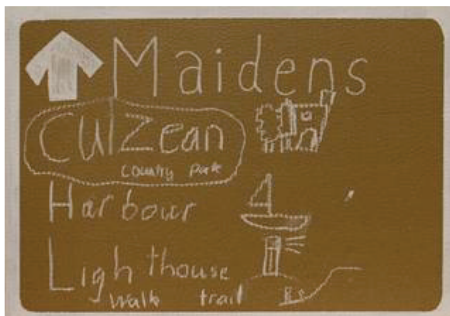 Maidens
Culzean
Country Park
Harbour
Lighthouse
walk trail